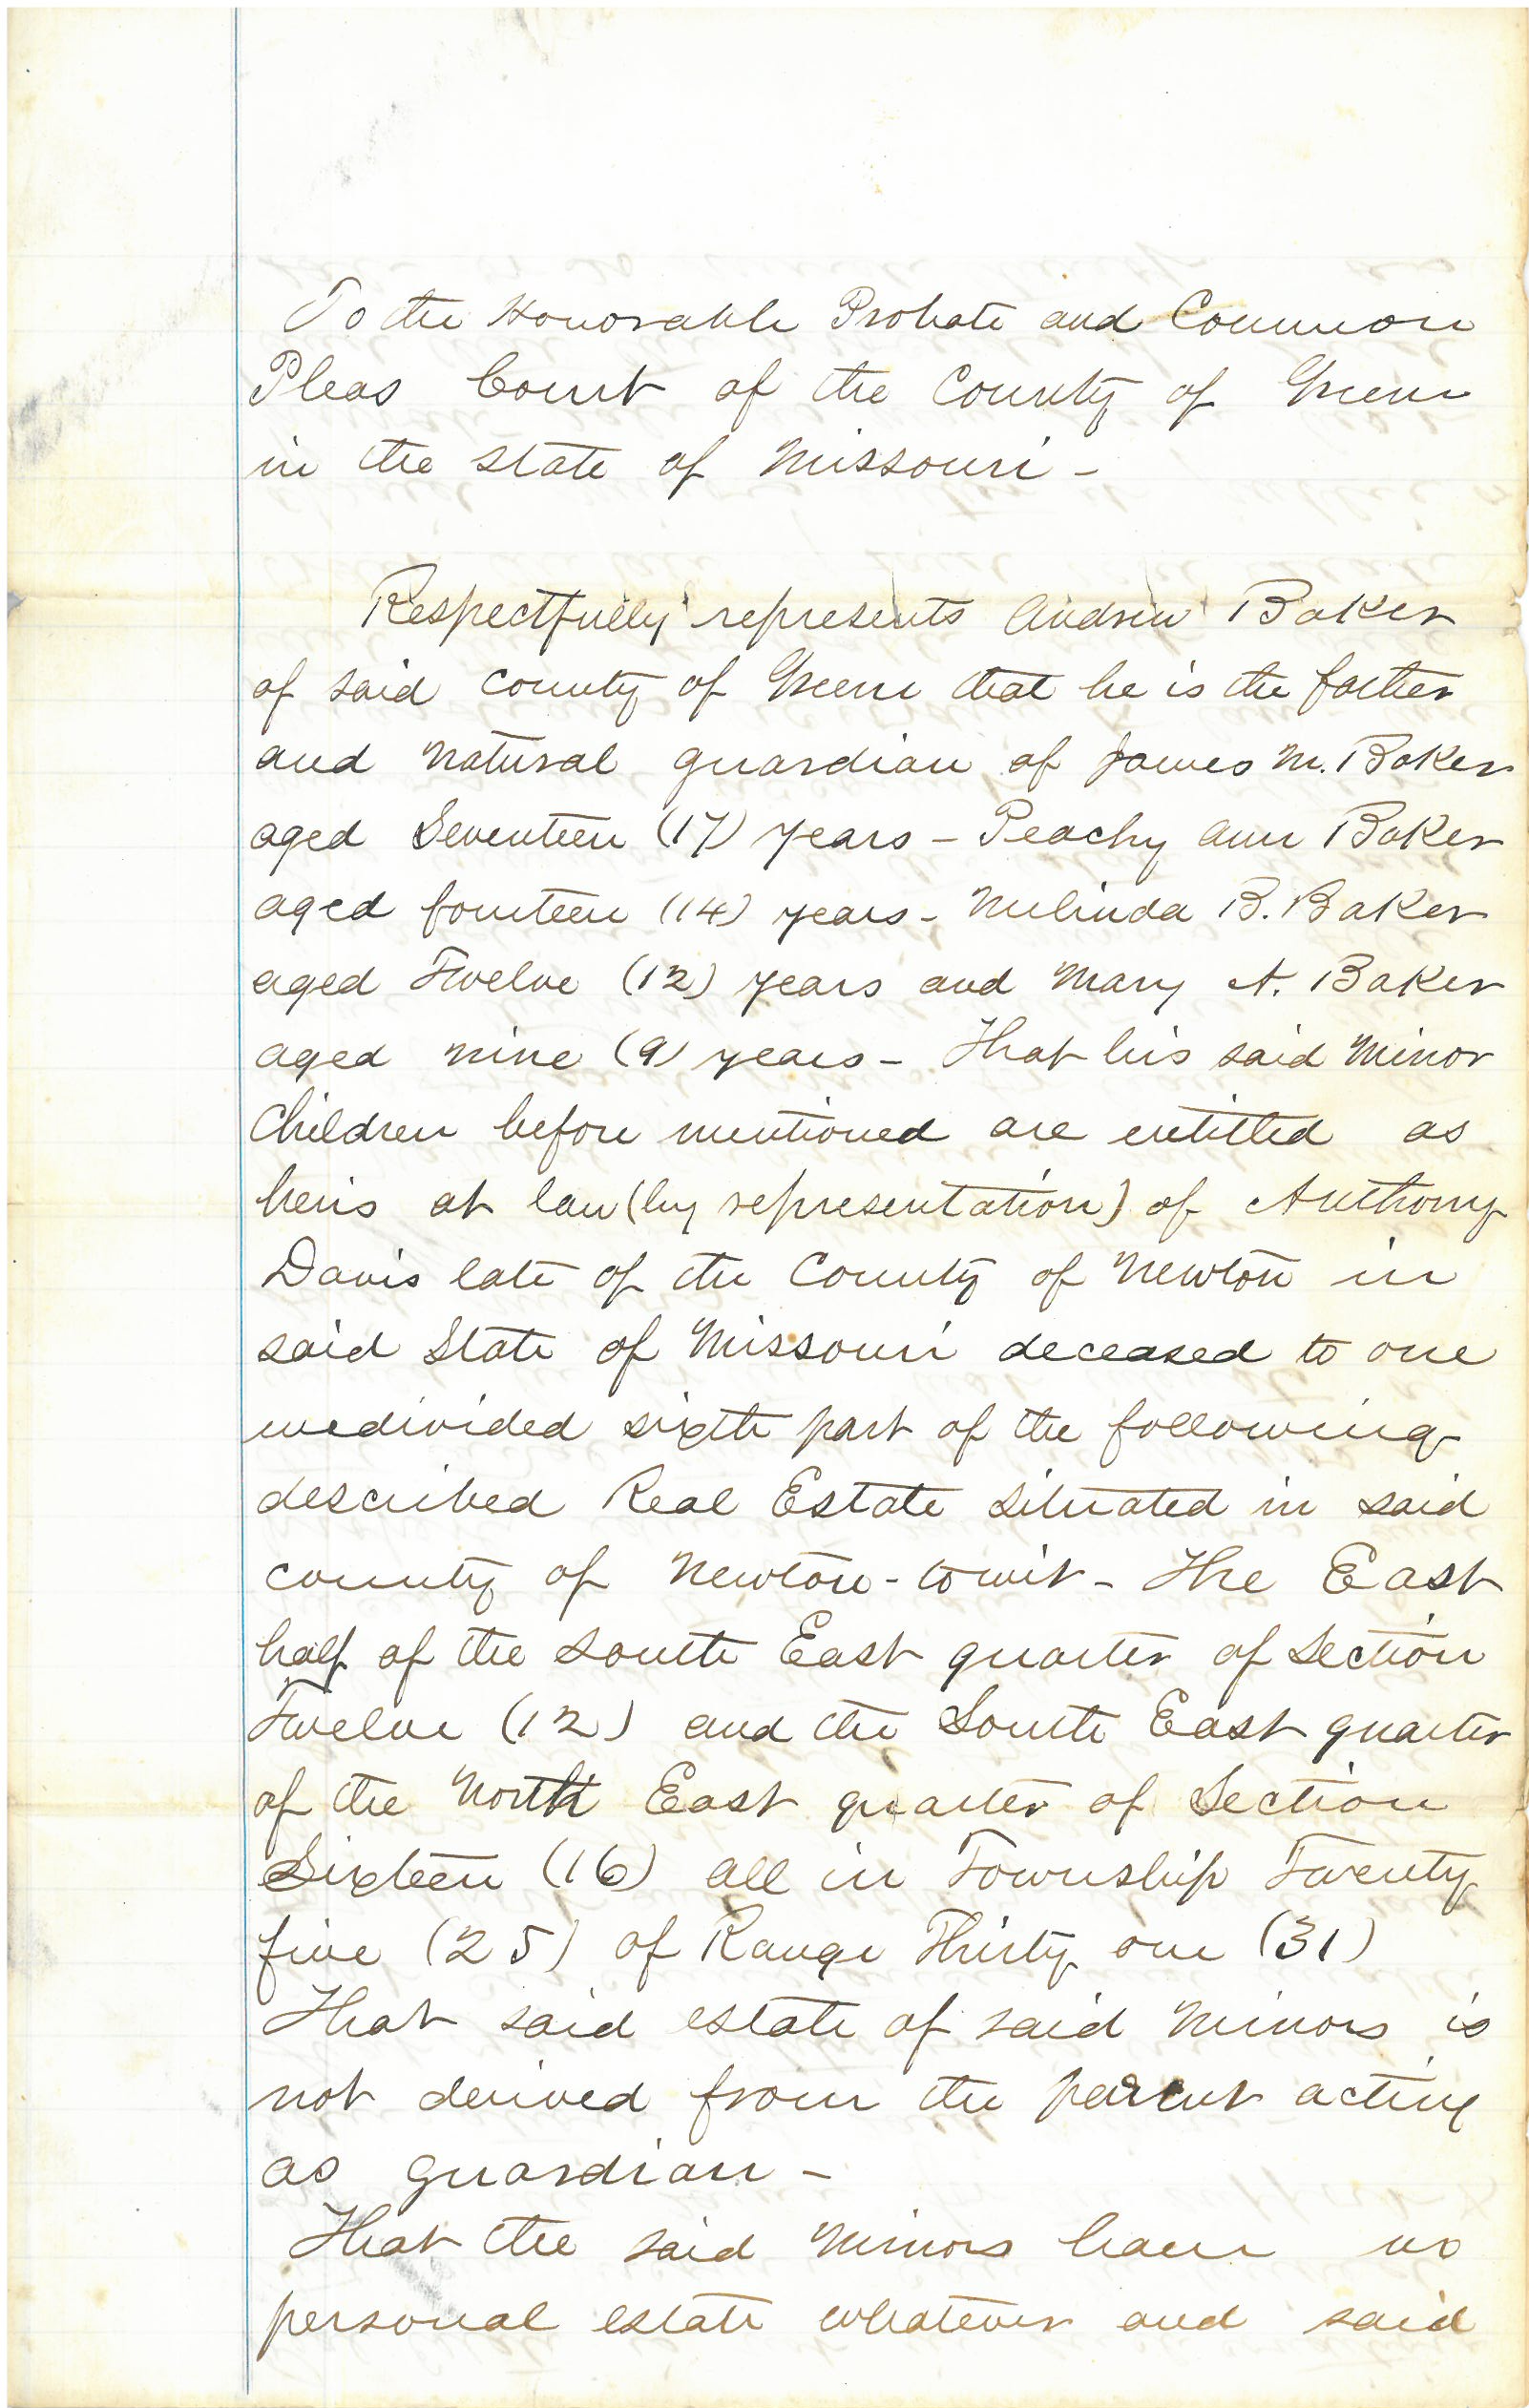 To the Honorable Probate and Common
Pleas Court of the County of Greene
in the state of Missouri -
Respectfully represents Andrew Baker
of said county of Greene that he is the father
and natural guardian of James M. Baker
aged Seventeen (17) years - Peachy Ann Baker
aged fourteen (14) years - Melinda B. Baker
aged Twelve (12) years and Mary A. Baker
aged nine (9) years - That his said minor
Children before mentioned are entitled as
heirs at law (by representation) of Anthony
Davis late of the County of Newton in
said State of Missouri deceased to one
undivided sixth part of the following
described Real Estate situated in said
county of Newton - towit - The East
half of the South East quarter of Section
Twelve (12) and the South East quarter
of the North East quarter of Section
Sixteen (16) all in Township Twenty
five (25) of Range Thirty one (31)
That said estate of said minors is
not derived from the parent acting
as guardian -
That the said minors have no
personal estate whatever and said